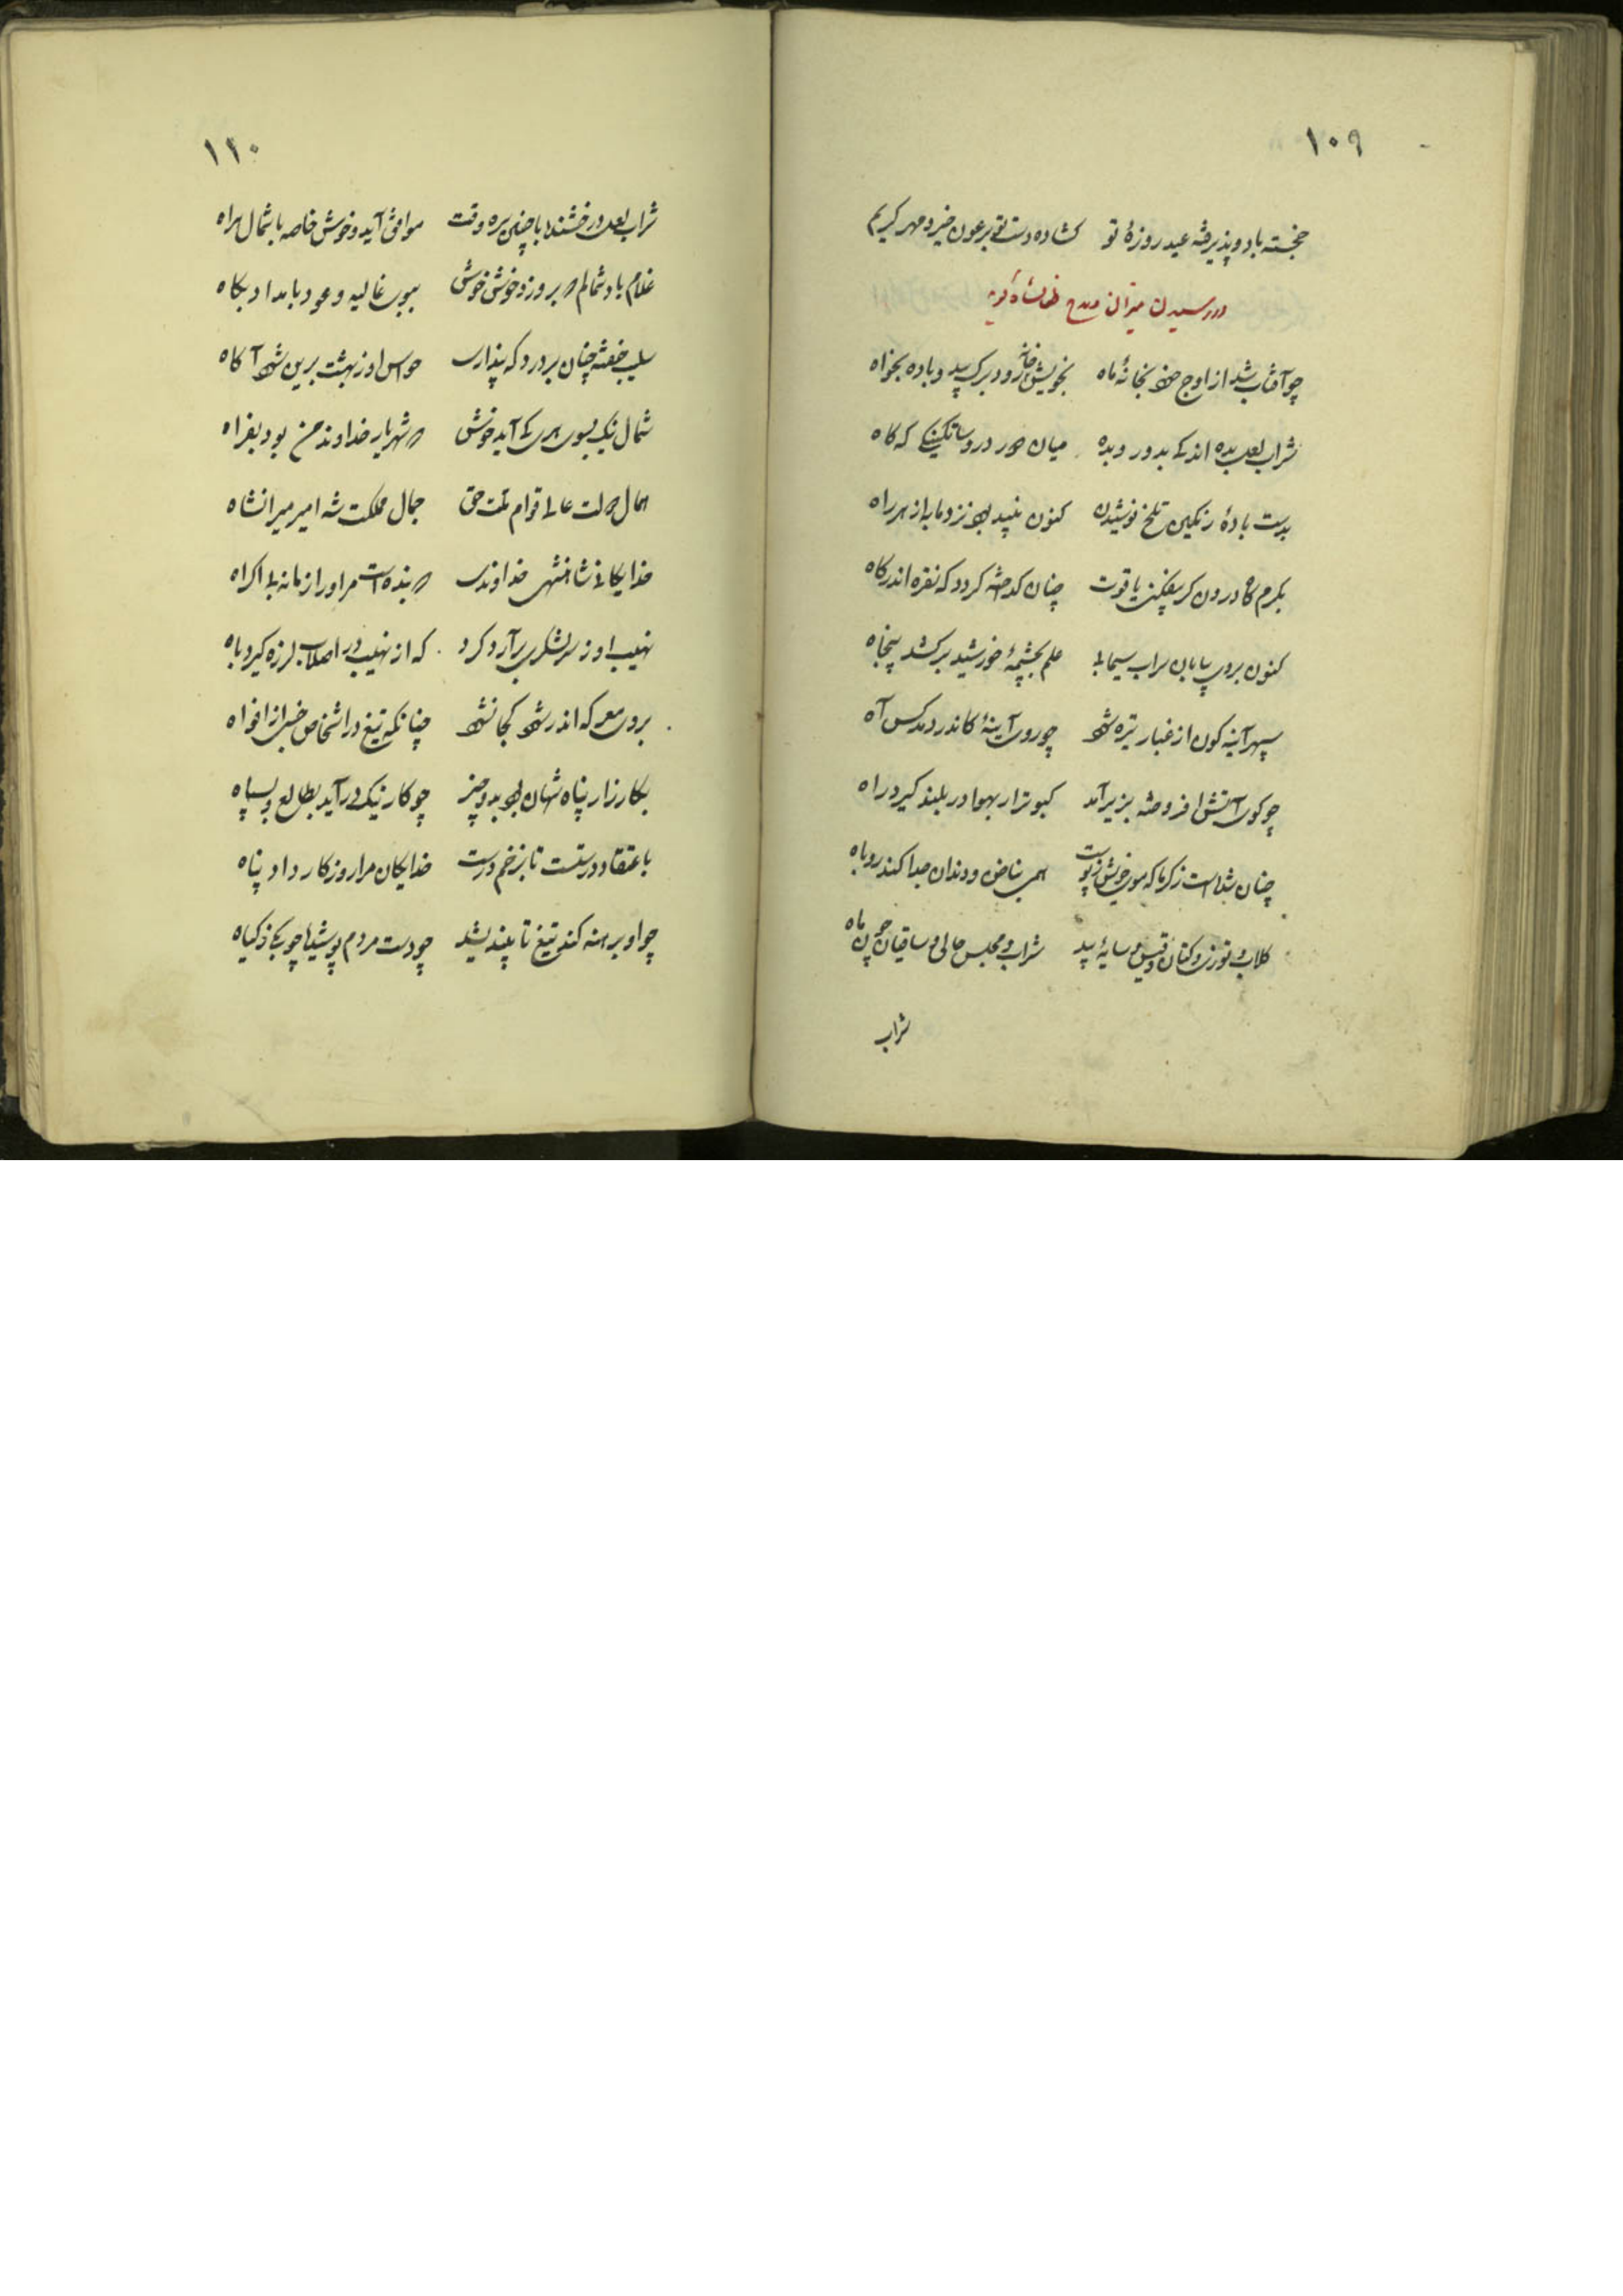 ۱۰۹
خجسته باد و پذیرفته عید روزهٔ تو کشاده دست تو بر عون خیر و مهر کریم
در رسیدن میزان و مدح
چو آفتاب شد از اوج خود بخانهٔ ماه بخویش خانه رو و برک بید و باده بخواه
شراب لعل بده اندکی بدور و بده میان خور در و ساتگینی که کاه
بدست بادهٔ رنکین تلخ نوشیدن کنون نبید بود نزد ما به از هر راه
بکرم کاه درون کر بیفکنی یاقوت چنان کداخته کردد که نقره اندر کاه
کنون بروی بیابان سراب سیمابی علم بچشمهٔ خورشید برکشد پنجاه
سپهر آینه کون از غبار تیره شود چو روی آینهٔ کاندر دمد کس آه
چو کوی آتش افروخته بزیر آمد کبوتر ار بهوا در بلند کیرد راه
چنان شده است ز کرما که موی خویش ز پوست همی بناخن و دندان جدا کند روباه
کلاب و توزی و کتان و قیس و سایهٔ بید شراب و مجلس خالی و ساقیان چون ماه
شراب
۱۱۰
شراب لعل درخشنده با چنین سره وقت موافق آید و خوش خاصه با شمال براه
غلام باد شمالم که بروزد خوش خوش ببوی غالیه و عود بامداد بکاه
خفته چنان بردرد که پنداری حواس او ز بهشت برین شود آکاه
شمال نیک بسوی هری کی آید خوش که شهریار خداوند من بود بفراه
همال دولت عالی قوام ملت حق جمال مملکت شه امیر میرانشاه
خدایکانی شاهنشهی خداوندی که بنده است مر او را زمانه بی اکراه
نهیب او ز سر لشکری برآرد کرد که از نهیب در اصلاب لرزه کیرد باه
بروی معرکه اندر شود کجا نشود چنانکه تیغ در اشخاص خنجر از افواه
بکارزار پناه شهان بود بدو چیز چو کار نیک درآید بطالع و بسپاه
باعتقاد درستست تا بزخم درست خدایکان مرا روزکار داد پناه
چو او برهنه کند تیغ تا پسند بشد چو دست مردم پوشیده چو بیخ ز کیاه